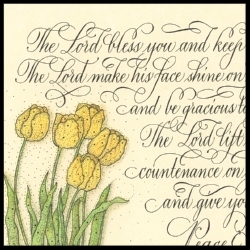 The Lord bless you and keep
The Lord make his face shine on
and be gracious t
The Lord lift
countenance on
and give you
Peace